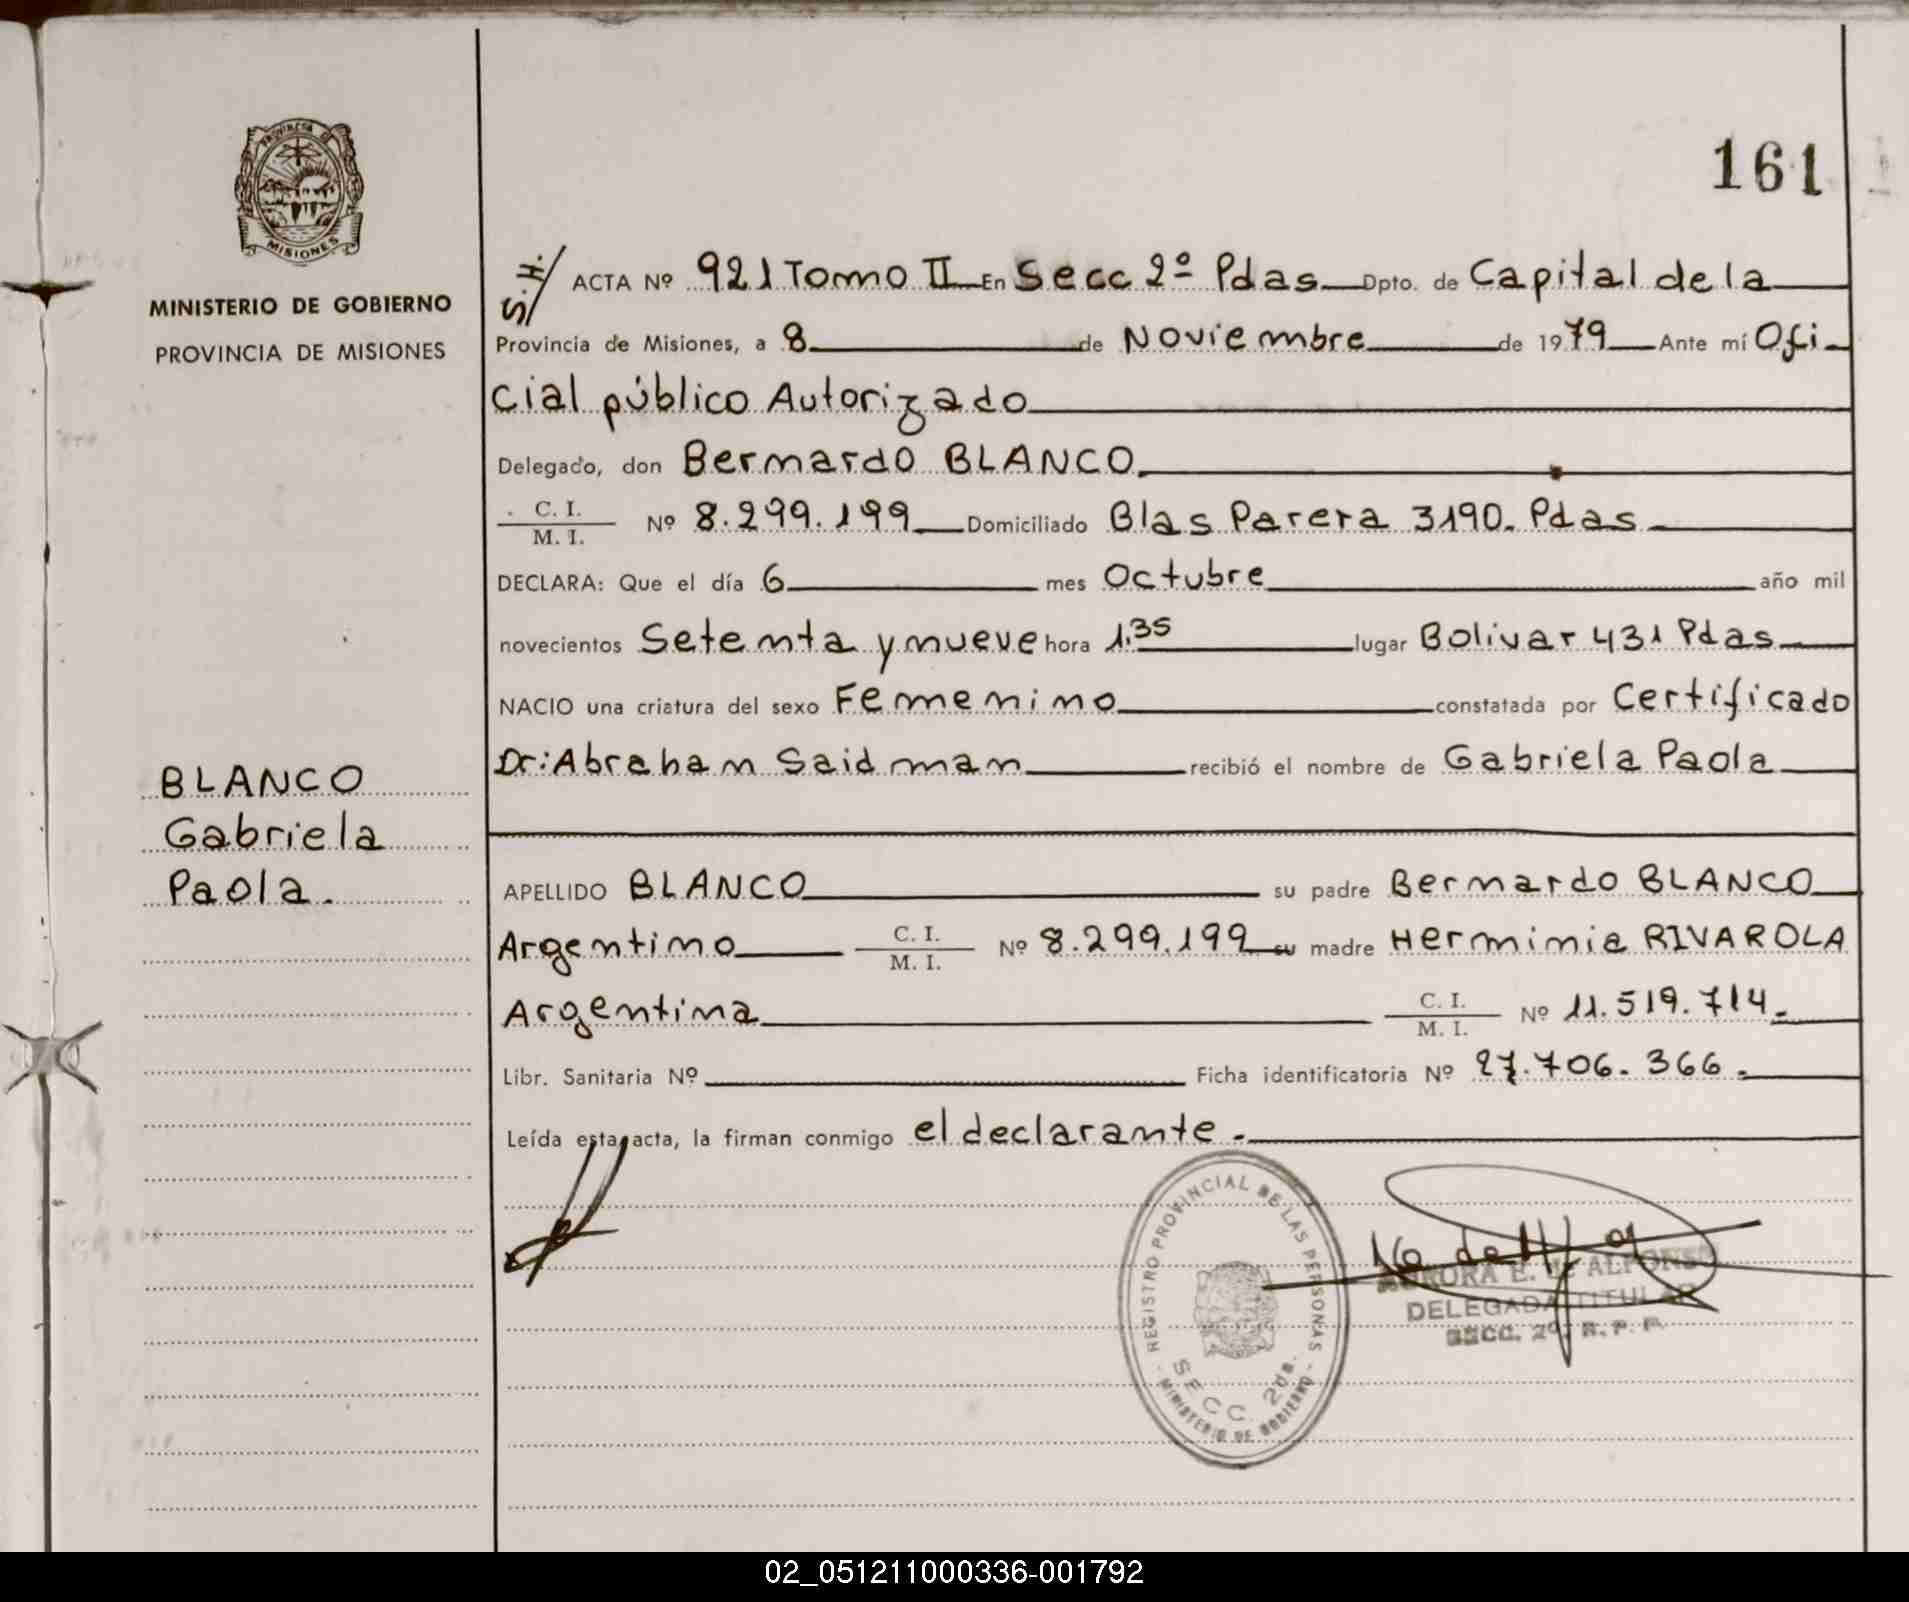 161
PROVINCIA DE
MISIONES
MINISTERIO DE GOBIERNO
PROVINCIA DE MISIONES
BLANCO
Gabriela
Paola.
S.H./ ACTA Nº 921 Tomo II En Secc 2º Pdas Dpto. de Capital de la
Provincia de Misiones, a 8 de Noviembre de 1979 Ante mí Ofi
cial público Autorizado
Delegado, don Bernardo BLANCO.
C. I.
M. I. Nº 8.299.199 Domiciliado Blas Parera 3190. Pdas
DECLARA: Que el día 6 mes Octubre año mil
novecientos Setenta y nueve hora 1.35 lugar Bolivar 431 Pdas
NACIO una criatura del sexo Femenino constatada por Certificado
Dr: Abraham Saidman recibió el nombre de Gabriela Paola
APELLIDO BLANCO su padre Bernardo BLANCO
Argentino C. I. M. I. Nº 8.299.199 su madre Herminia RIVAROLA
Argentina C. I. M. I. Nº 11.519.714.
Libr. Sanitaria Nº Ficha identificatoria Nº 27.706.366.
Leída esta acta, la firman conmigo el declarante.
REGISTRO PROVINCIAL DE LAS PERSONAS
SECC. 2da.
MINISTERIO DE GOBIERNO
AURORA E. de ALFONSO
DELEGADA TITULAR
SECC. 2º, R. P. P.
02_051211000336-001792